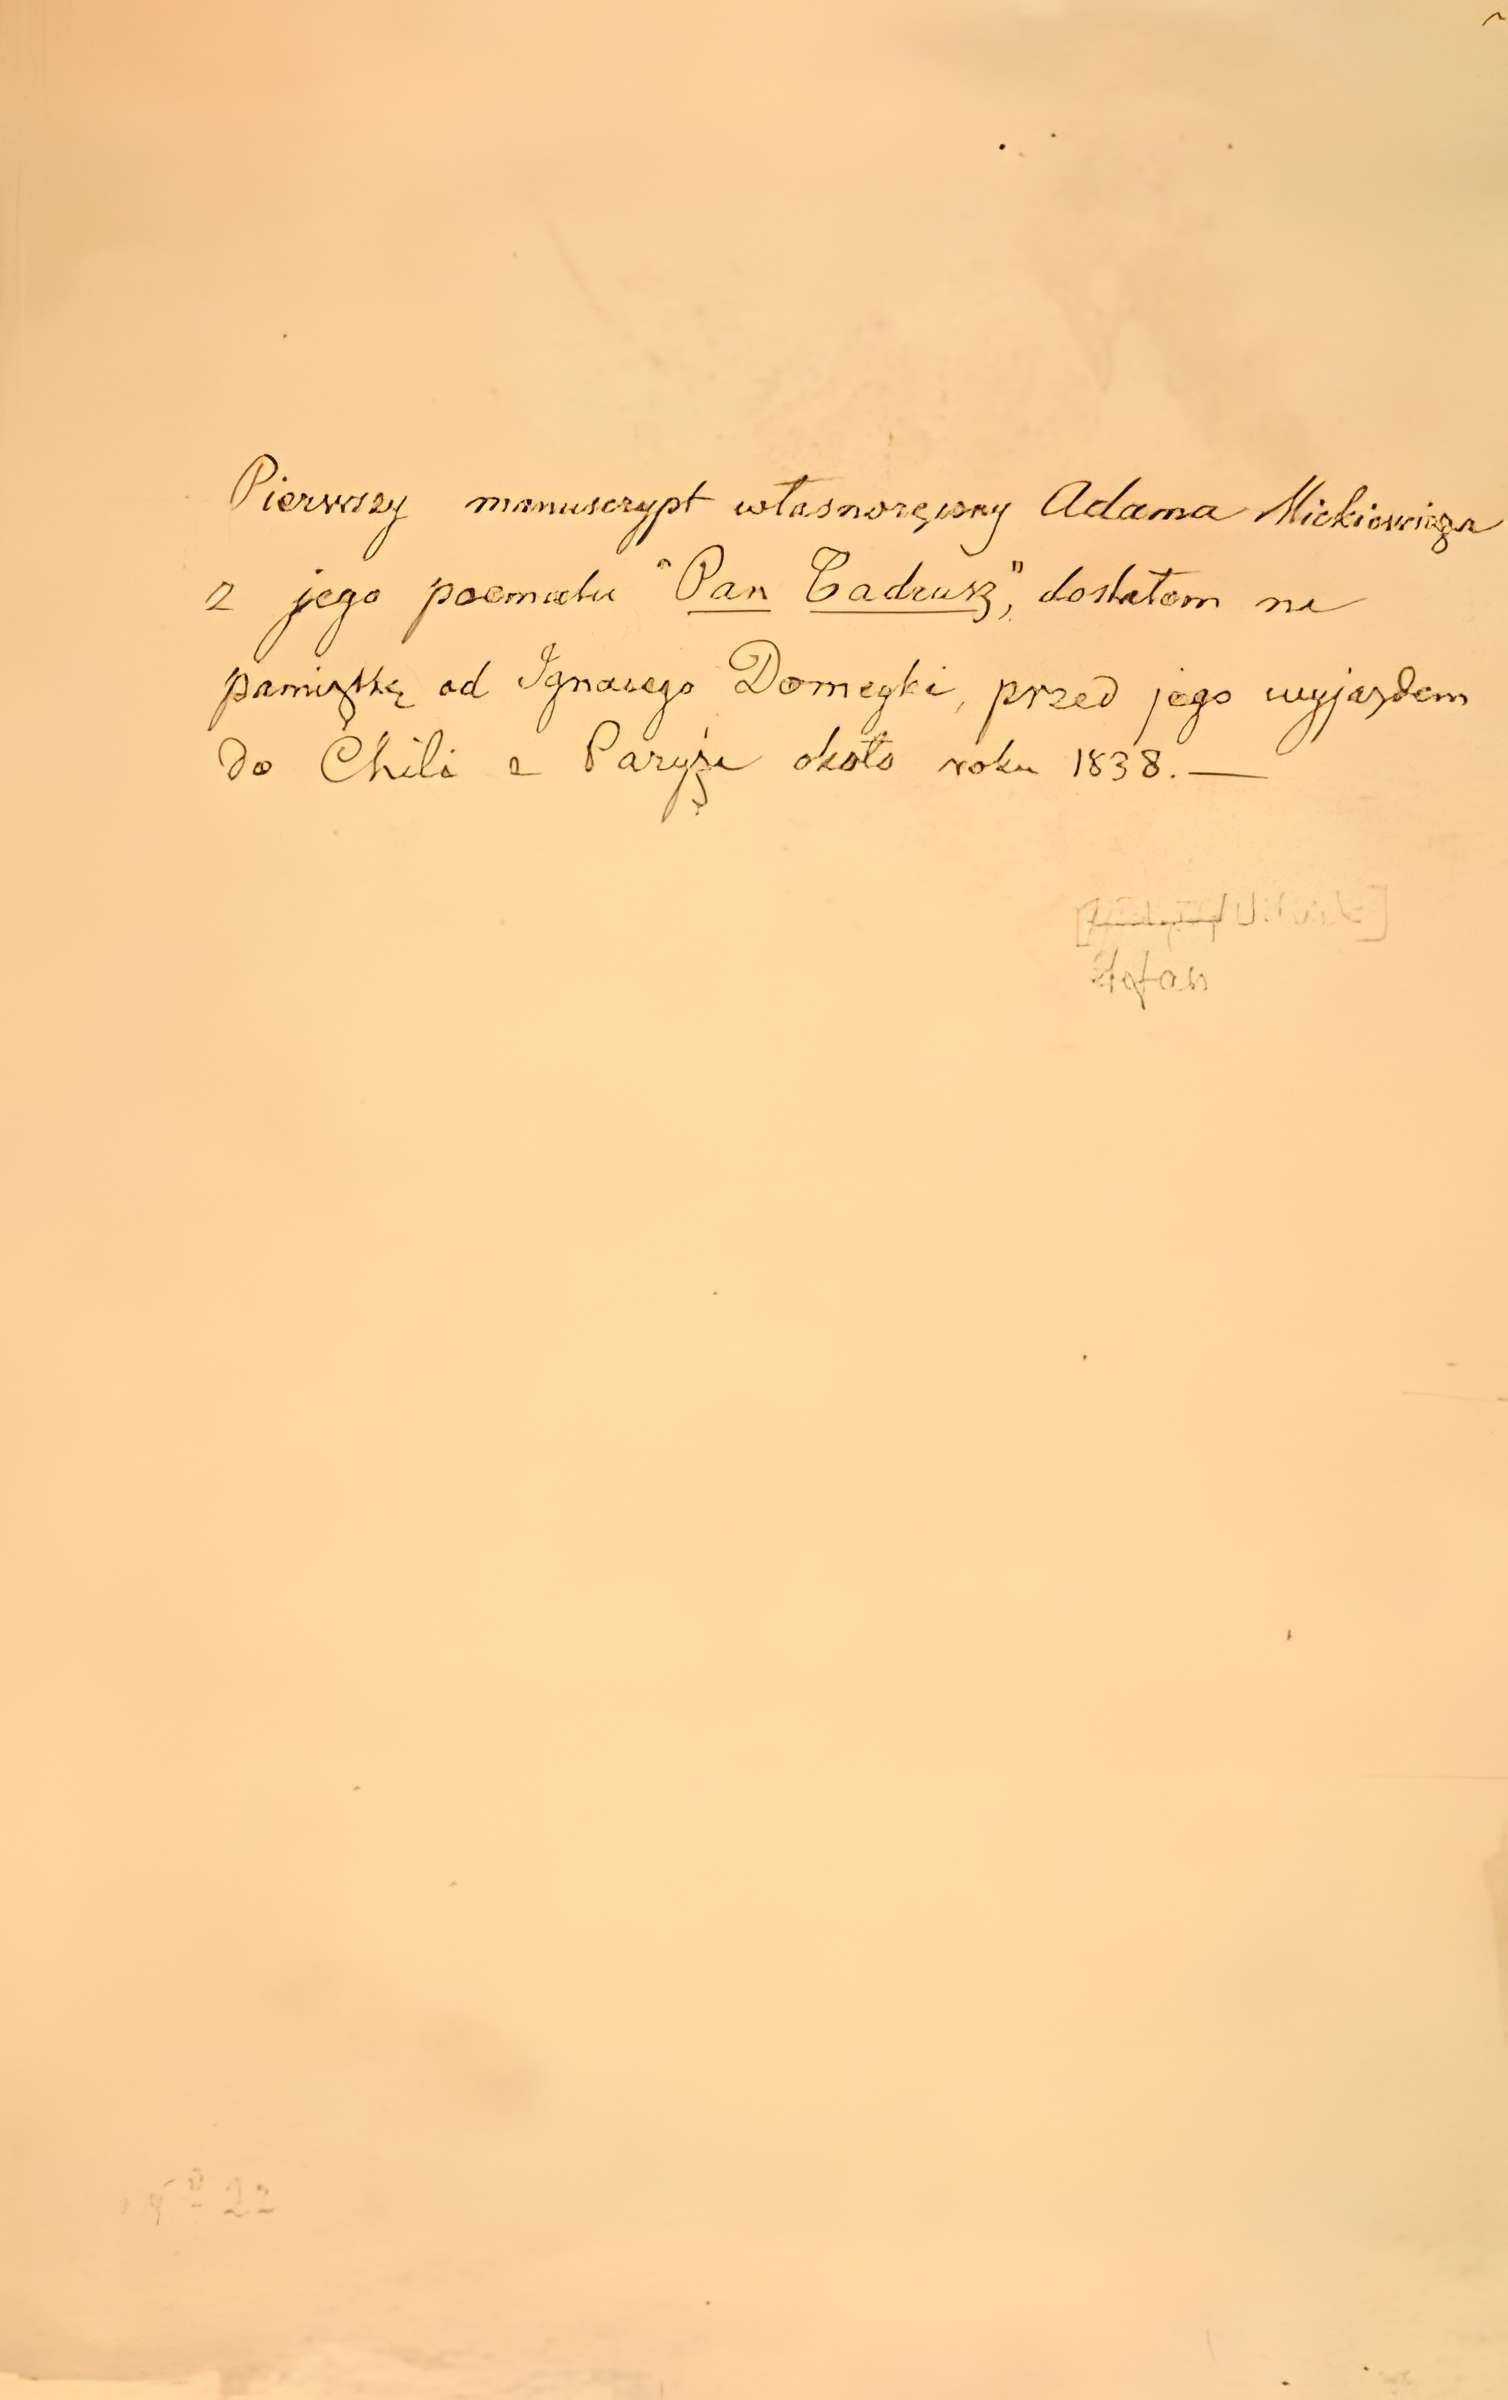 Pierwszy manuscrypt własnoręczny Adama Mickiewicza
z jego poematu "Pan Tadeusz", dostałem na
pamiątkę od Ignacego Domeyki, przed jego wyjazdem
do Chili z Paryża około roku 1838. —
Stefan